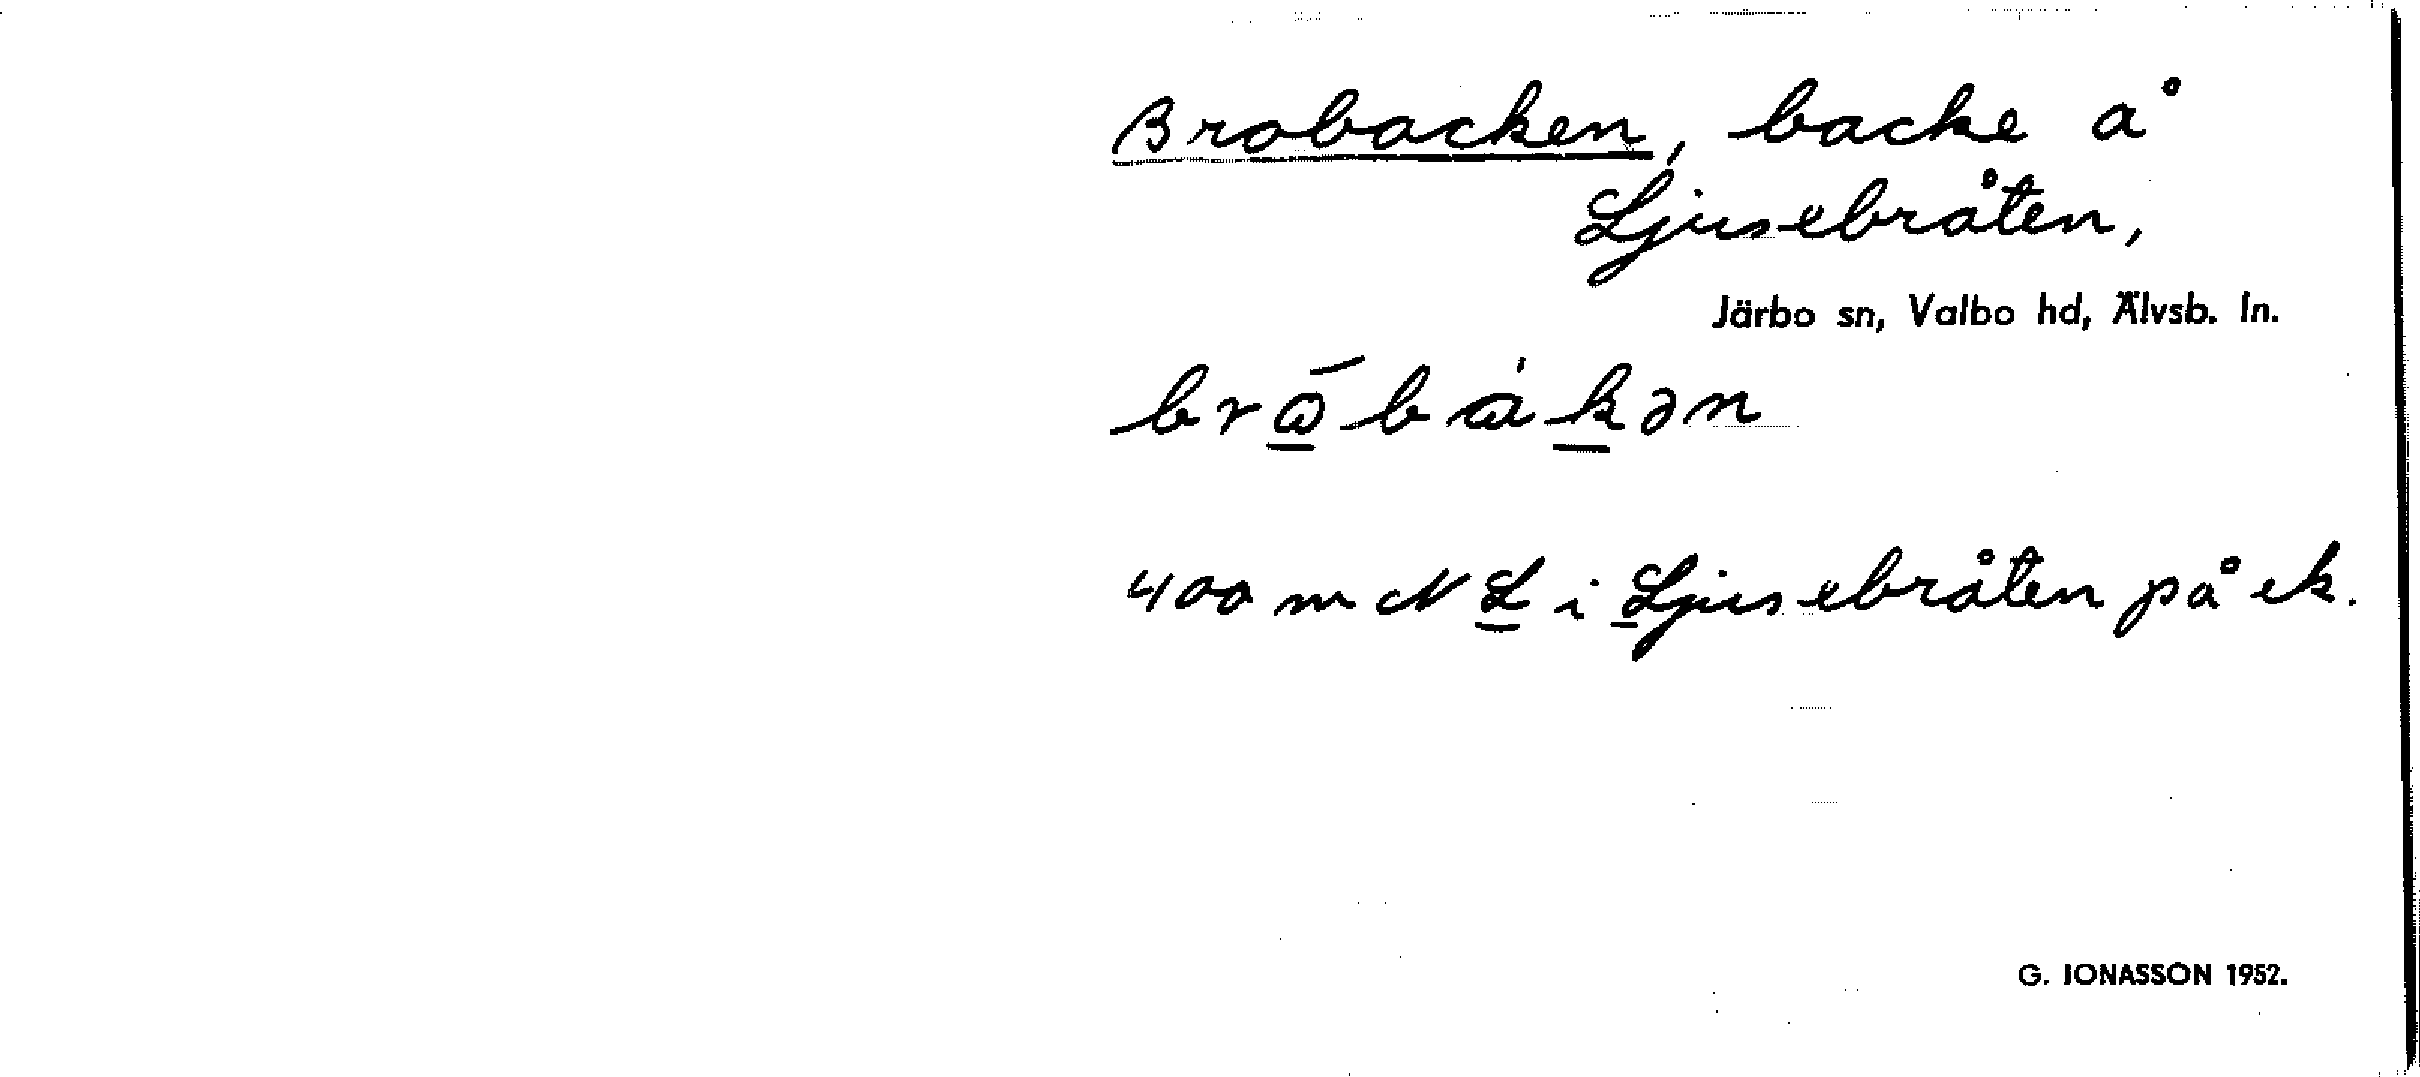 Brobacken, backe å
Ljusebråten,
Järbo sn, Valbo hd, Älvsb. ln.
400 m N L i Ljusebråten på ek.
G. JONASSON 1952.